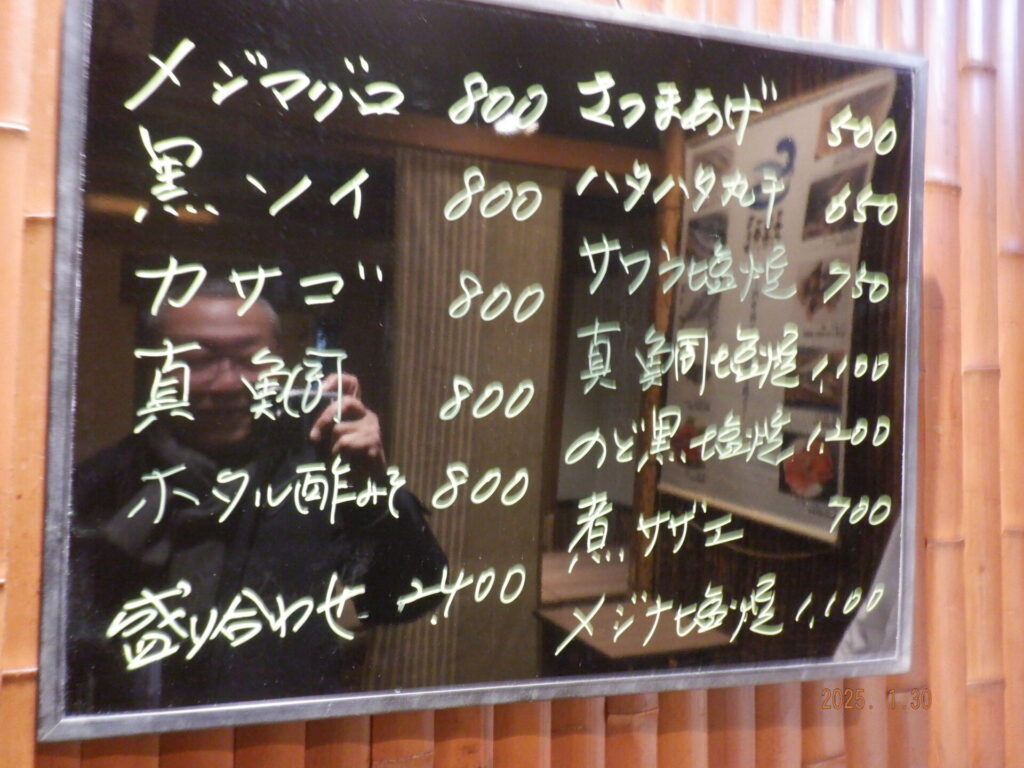 メジマグロ 800
黒ソイ 800
カサゴ 800
真鯛 800
ホタル酢みそ 800
盛り合わせ 2,400
さつまあげ 500
ハタハタ丸干 650
サワラ塩焼 750
真鯛塩焼 1,100
のど黒塩焼 1,200
煮サザエ 700
メジナ塩焼 1,100
2025. 1.30